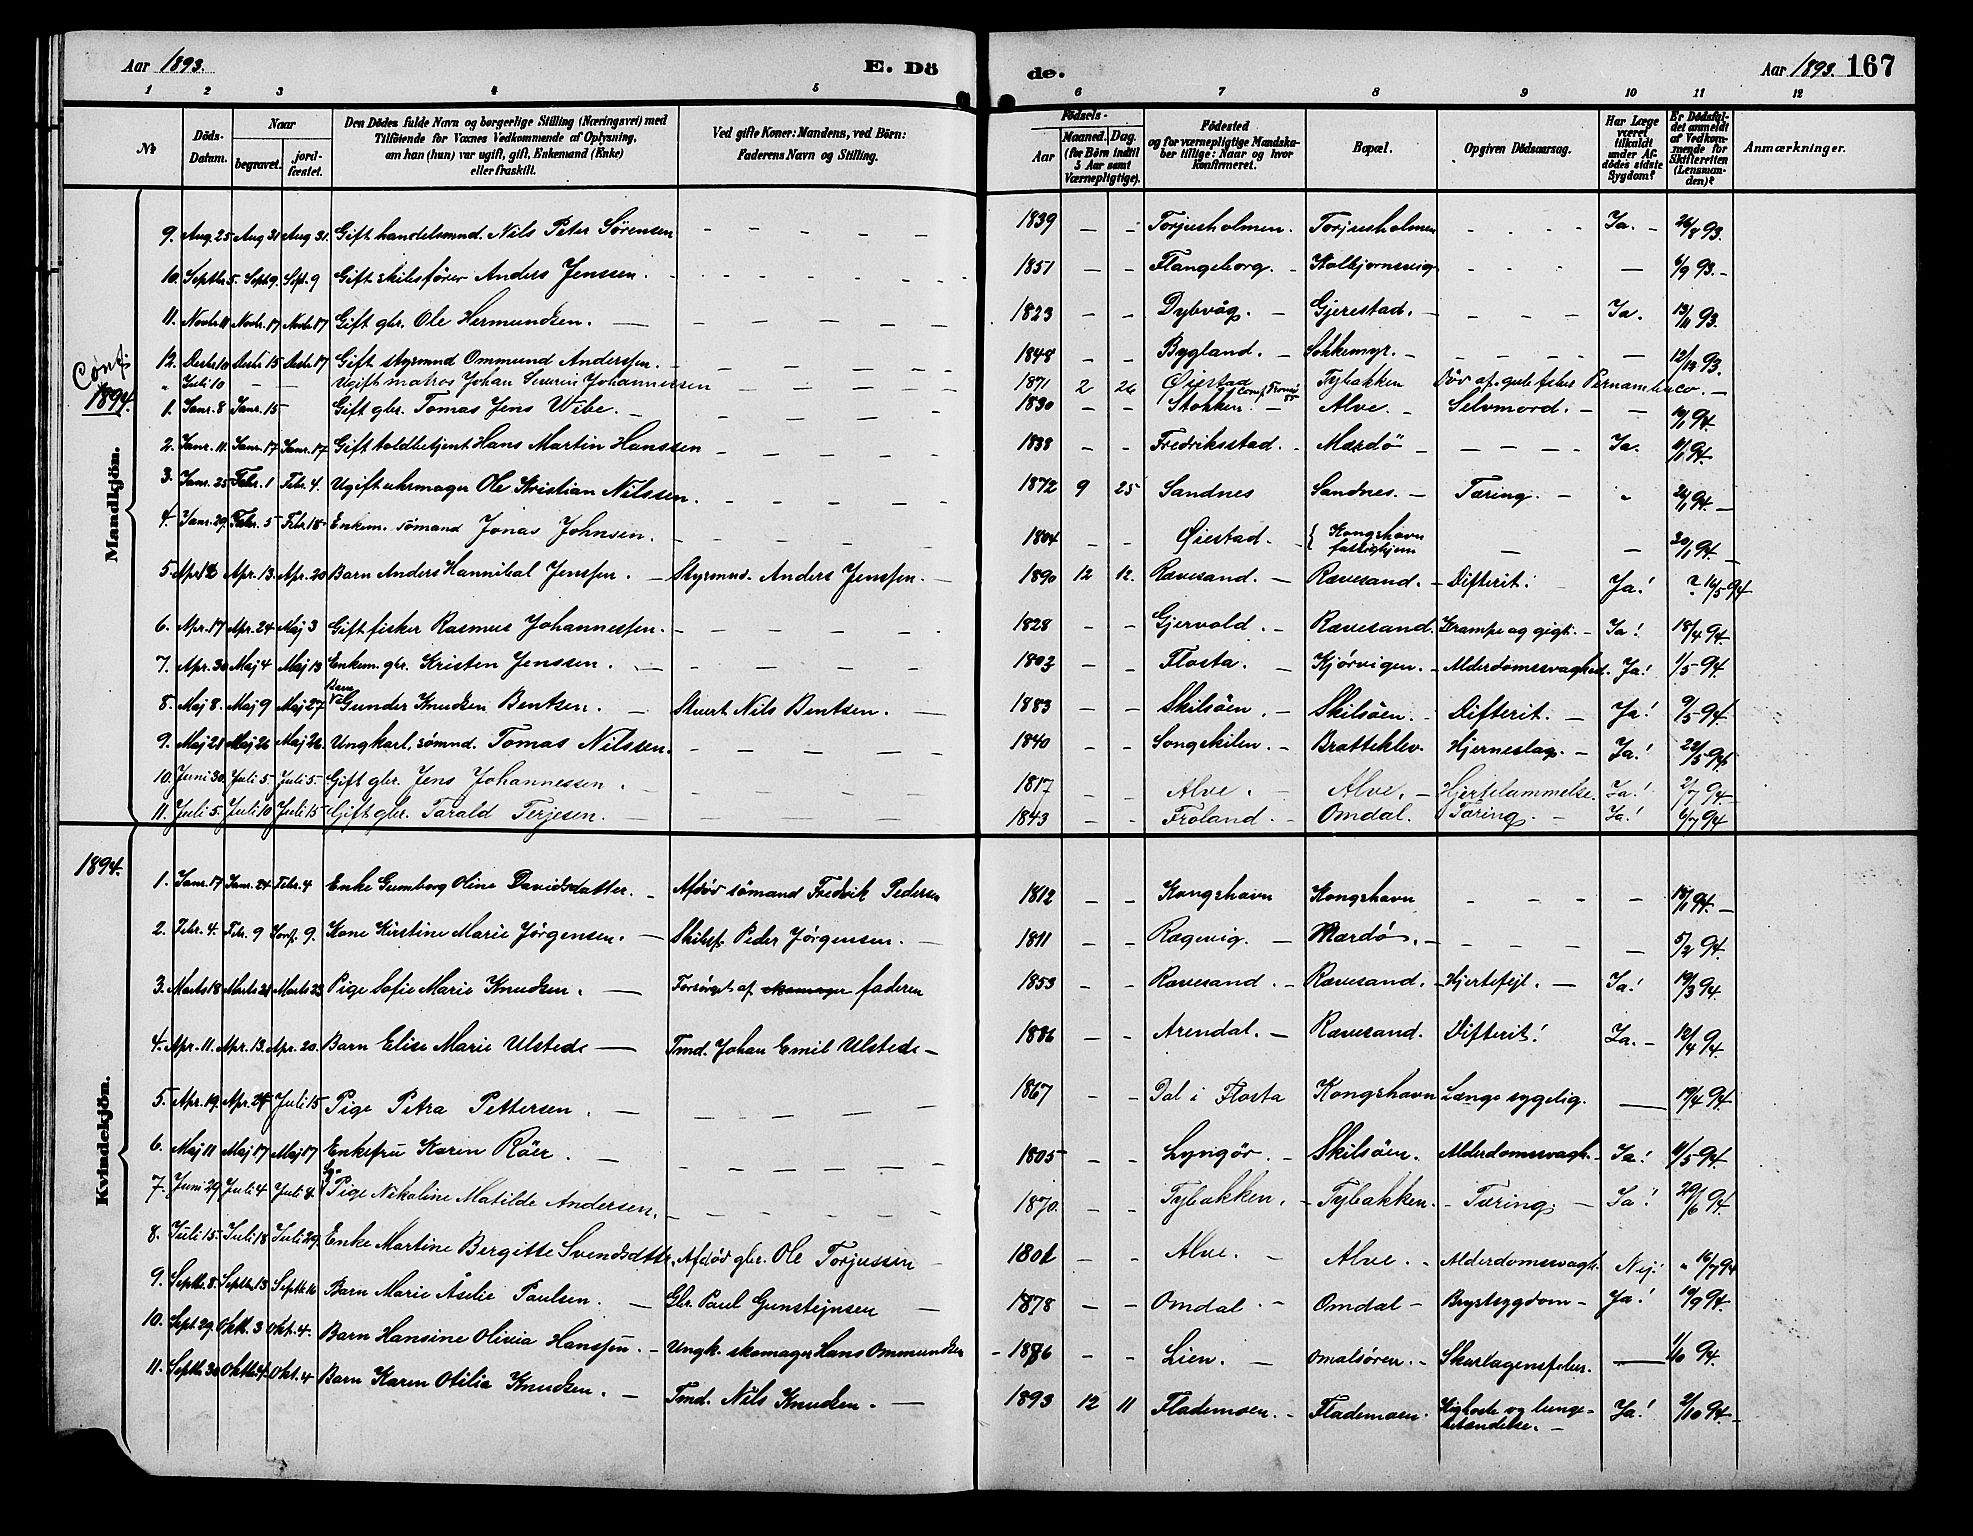 Aar 1893. E. Dö de. Aar 1893. 167
1 2 3 4 5 6 7 8 9 10 11 12
No
Döds-Datum.
Naar
begravet.
jord-fæstet.
Den Dödes fulde Navn og borgerlige Stilling (Næringsvei) med
Tilföiende for Voxnes Vedkommende af Oplysning,
om han (hun) var ugift, gift, Enkemand (Enke)
eller fraskilt.
Ved gifte Koner: Mandens, ved Börn:
Faderens Navn og Stilling.
Födsels-
Aar
Maaned. Dag.
(for Börn indtil
5 Aar samt
Værnepligtige).
Födested
og for værnepligtige Mandska-
ber tillige: Naar og hvor
konfirmeret.
Bopæl.
Opgiven Dödsaarsag.
Har Læge
været
tilkaldt
under Af-
dödes sidste
Sygdom?
Er Dödsfal-
det anmeldt
af Vedkom-
mende for
Skifteretten
(Lensman-
den)?
Anmærkninger.
Mandkjön.
9. Aug. 25 Aug 31 Aug 31. Gift handelsmnd. Nils Peter Sörensen – – – – – 1839 – – Torjusholmen. Torjusholmen – – – – Ja. – 26/8 93.
10. Septbr. 5. Sept 9. Spt. 9 Gift skibsförer Anders Jenssen. – – – – – 1851 – – Flangeborg. – Kolbjornsvig – – – – – 6/9 93. –
11. Novbr. 11 Novbr. 17 Novbr. 17 Gift gbr. Ole Hermundsen. – – – – – 1823 – – Dybvåg. – Gjerestad. – – – – – Ja. 13/11 93.
12. Desbr. 10 Desbr 15 Desbr 17 Gift styrmnd Ommund Anderssen. – – – – – 1848 – – Bygland. – Sokkemyr. – – – – – – 12/12 93.
Conf:
" Juli 10 – – Ugift matros Johan Severin Johannessen – – – – – 1871 2 26 Øiestad Conf. Tromö Tybakken Döv af gule feber Pernambuco. –
1894.
1. Janr. 8 Janr. 15 Gift gbr. Tomas Jens Wibe. – – – – – 1830 – – Stokken. – Alve. – Selvmord. – – 10/1 94.
2. Janr. 11. Janr. 17 Janr. 17 Gift toldbetjent Hans Martin Hanssen – – – – – 1838 – – Fredriksstad. – Mærdö – – – – – Ja. 11/1 94.
3. Janr. 25 Febr. 1 Febr. 4. Ugift uhrmager Ole Kristian Nilssen. – – – – – 1872 9 25 Sandnes Sandnes. – Tæring. – " 26/1 94. –
4. Janr. 29. Febr. 5 Febr. 18 Enkem. sömand Jonas Johnsen. – – – – – 1804 – – Øiestad. – { Kongshavn fattighjem – – 30/1 94. –
5. Apr. 12 Apr. 13. Apr. 20 Barn Anders Hannibal Jenssen. – Styrmnd. Anders Jenssen. – 1890 12 12. Rævesand. – Rævesand. – Difterit! Ja! ? 16/5 94
6. Apr. 17 Apr. 24 Maj 3 Gift fisker Rasmus Johannessen. – – – – – 1828 – – Gjervold. – Rævesand. Krampe og gigt. – Ja! 18/4 94.
7. Apr. 30 Maj 4 Maj 13 Enkem. gbr. Kristen Jenssen. – – – – – 1803 – – Flosta. – Kjörvigen. – Alderdomssvaghed. Ja! 1/5 94.
8. Maj 8. Maj 9 Maj 27 Barn Gunder Knudsen Bentsen. – Stuert Nils Bentsen. – 1883 – – Skilsöen. – Skilsöen. – Difterit. – Ja! 9/5 94.
9. Maj 21 Maj 26 Maj 26. Ungkarl, sömnd. Tomas Nilssen. – – – – – 1840 – – Songekilen. – Bratteklev. Hjerneslag. – Ja! 22/5 94
10. Juni 30. Juli 5. Juli 5. Gift gbr. Jens Johannessen. – – – – – 1817 – – Alve. – Alve. – Hjertelammelse. Ja! 2/7 94
11. Juli 5. Juli 10 Juli 15 Gift gbr. Tarald Terjesen. – – – – 1843 – – Froland. – Omdal. Tæring. – Ja! 6/7 94
Kvindekjön.
1894.
1. Janr. 17 Janr. 24 Febr. 4 Enke Gumborg Oline Davidsdatter. – Afdöd sömand Fredrik Pedersen 1812 – – Kongshavn Kongshavn – – – – 18/1 94. –
2. Febr. 4. Febr. 9 Conf. 9. Kone Kirstine Marie Jörgensen. – Skibsf. Peder Jörgensen. – 1811 – – Rægevig. – Mærdö. – – – – – 5/2 94.
3. Marts 18 Marts 21 Marts 23 Pige Sofie Marie Knudsen. – Forsörget af skomager faderen 1853 – – Rævesand. – Rævesand. – Hjertefejl. – Ja! 19/3 94.
4. Apr. 11. Apr. 13. Apr. 20. Barn Elise Marie Ulstede – Tmd. Johan Emil Ulstede – 1886 – – Arendal. – Rævesand. Difterit! Ja. – 12/4 94.
5. Apr. 19. Apr. 24 Juli 15 Pige Petra Pettersen. – – – – – 1867 – – Dal i Flosta Kongshavn Længe sygelig. – 19/4 94.
6. Maj 11 Maj 17 Maj 17 Enkefru Karen Röer. – – – – – 1805 – – Lyngör. – Skilsöen. Alderdomssvagh. – Ja! 11/5 94.
7. Juni 29 Juli 4 Juli 4. Pige Nikoline Matilde Andersen. – – – – – 1870. – – Tybakken. – Tybakken. – Tæring. – Ja! 29/6 94.
8. Juli 15 Juli 18 Juli 29. Enke Martine Bergitte Svendsdttr. Afdöd gbr. Ole Torjussen – 1801 – – Alve. – Alve. – Alderdomssvagh. Nej! " 16/7 94
9. Septbr. 8. Septbr. 13 Septbr. 16 Barn Marie Åselie Paulsen. – Gbr. Paul Gunstejnsen – 1878 – – Omdal. – Omdal – Brystsygdom – Ja! 10/9 94.
10. Sept. 29. Oktb. 3 Okt. 4. Barn Hansine Olivia Hanssen. – Ungk. skomager Hans Ommundsen – 1886 – – Lien. – Omalsören. – Skarlagensfeber. – 1/10 94.
11. Septbr. 30 Oktbr 4. Okt. 4 Barn Karen Otilia Knudsen. – Tmd. Nils Knudsen. – 1893 12 11 Flademoen. – Flademoen. Kighoste og lunge-betændelse. – Ja! 2/10 94. –